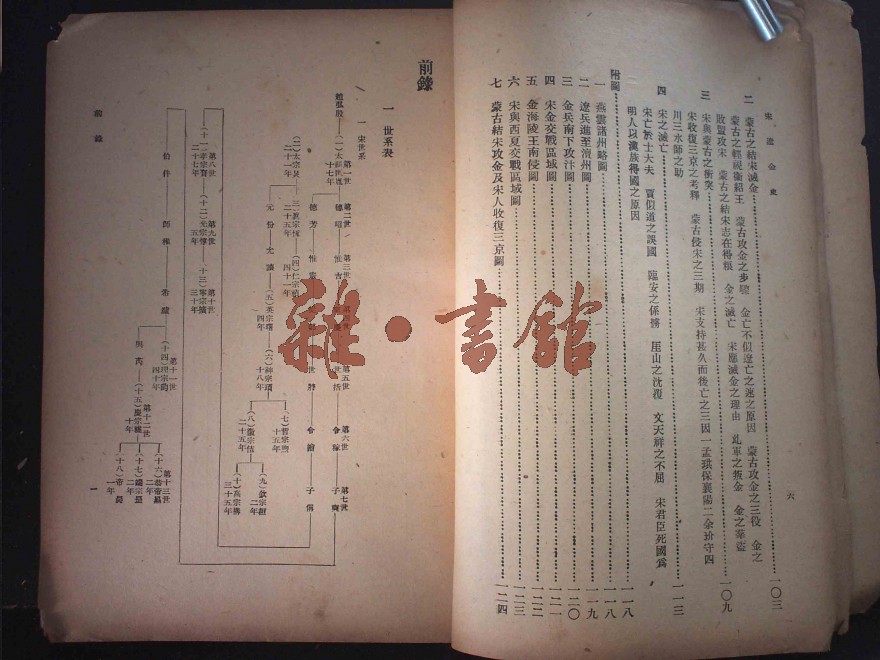 宋遼金史
六
二 蒙古之結宋滅金 一〇三
蒙古之輕視衞紹王 蒙古攻金之步驟 金亡不似遼亡之速之原因 蒙古攻金之三役 金之
敗盟攻宋 蒙古之結宋志在得糧 金之滅亡 宋應滅金之理由 乣軍之叛金 金之羣盜
三 宋與蒙古之衝突 一〇九
宋收復三京之考釋 蒙古侵宋之三期 宋支持甚久而後亡之三因一孟珙保襄陽二余玠守四
川三水師之助
四 宋之滅亡 一一三
宋亡於士大夫 賈似道之誤國 臨安之係擄 厓山之沈覆 文天祥之不屈 宋君臣死國爲
明人以漢族得國之原因
附圖 一一八
一 燕雲諸州略圖 一一八
二 遼兵進至澶州圖 一一九
三 金兵南下攻汴圖 一二〇
四 宋金交戰區域圖 一二一
五 金海陵王南侵圖 一二二
六 宋與西夏交戰區域圖 一二三
七 蒙古結宋攻金及宋人收復三京圖 一二四
前錄
一 世系表
一 宋世系
趙弘殷
第一世
(一)太祖匡胤
十七年
第二世
德昭
第三世
惟吉
第五世
第六世
令稼
第七世
子奭
德芳
惟憲
世將
令譮
子偁
(二)太宗炅
二十一年
(三)真宗恆
二十五年
(四)仁宗禎
四十一年
元份
允讓
(五)英宗曙
四年
(六)神宗頊
十八年
(七)哲宗煦
十五年
(八)徽宗佶
二十五年
(九)欽宗桓
二年
(十)高宗構
三十五年
第八世
(十一)孝宗昚
二十七年
第九世
(十二)光宗惇
五年
第十世
(十三)寧宗擴
三十年
伯
師
希瓐
第十一世
(十四)理宗昀
四十年
與芮
第十二世
(十五)度宗禥
十年
第十三世
(十六)恭帝㬎
二年
(十七)端宗昰
二年
(十八)帝昺
一年
前錄
一
雜·書館